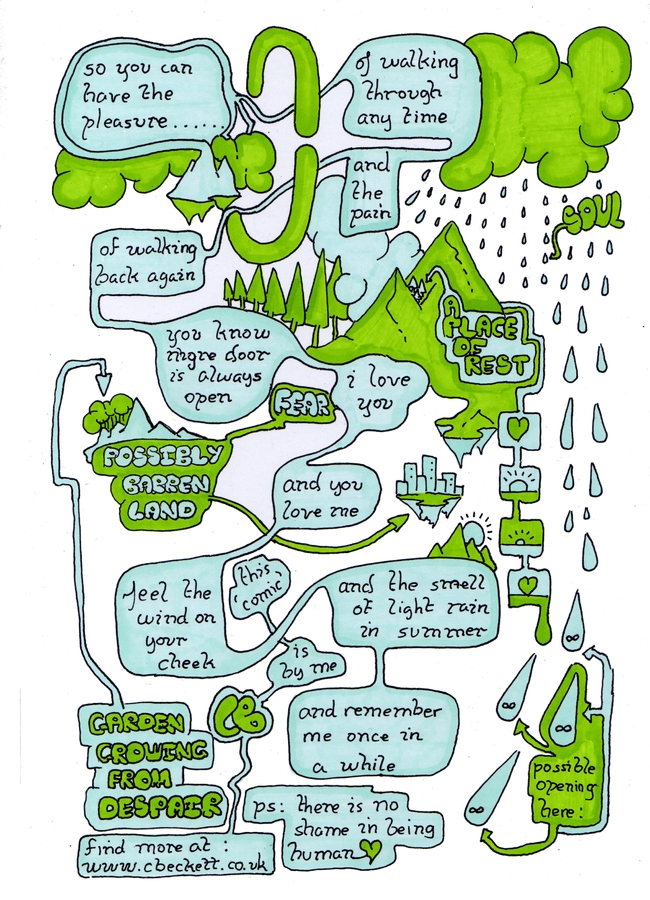 so you can
have the
pleasure......
of walking
through
any time
and
the
pain
SOUL
of walking
back again
you know
more door
is always
open
A
PLACE
OF
REST
i love
you
FEAR
POSSIBLY
BARREN
LAND
and you
love me
feel the
wind on
your
cheek
this
comic
is
by me
CB
and the smell
of light rain
in summer
and remember
me once in
a while
GARDEN
GROWING
FROM
DESPAIR
possible
opening
here:
ps: there is no
shame in being
human
find more at:
www.cbeckett.co.uk